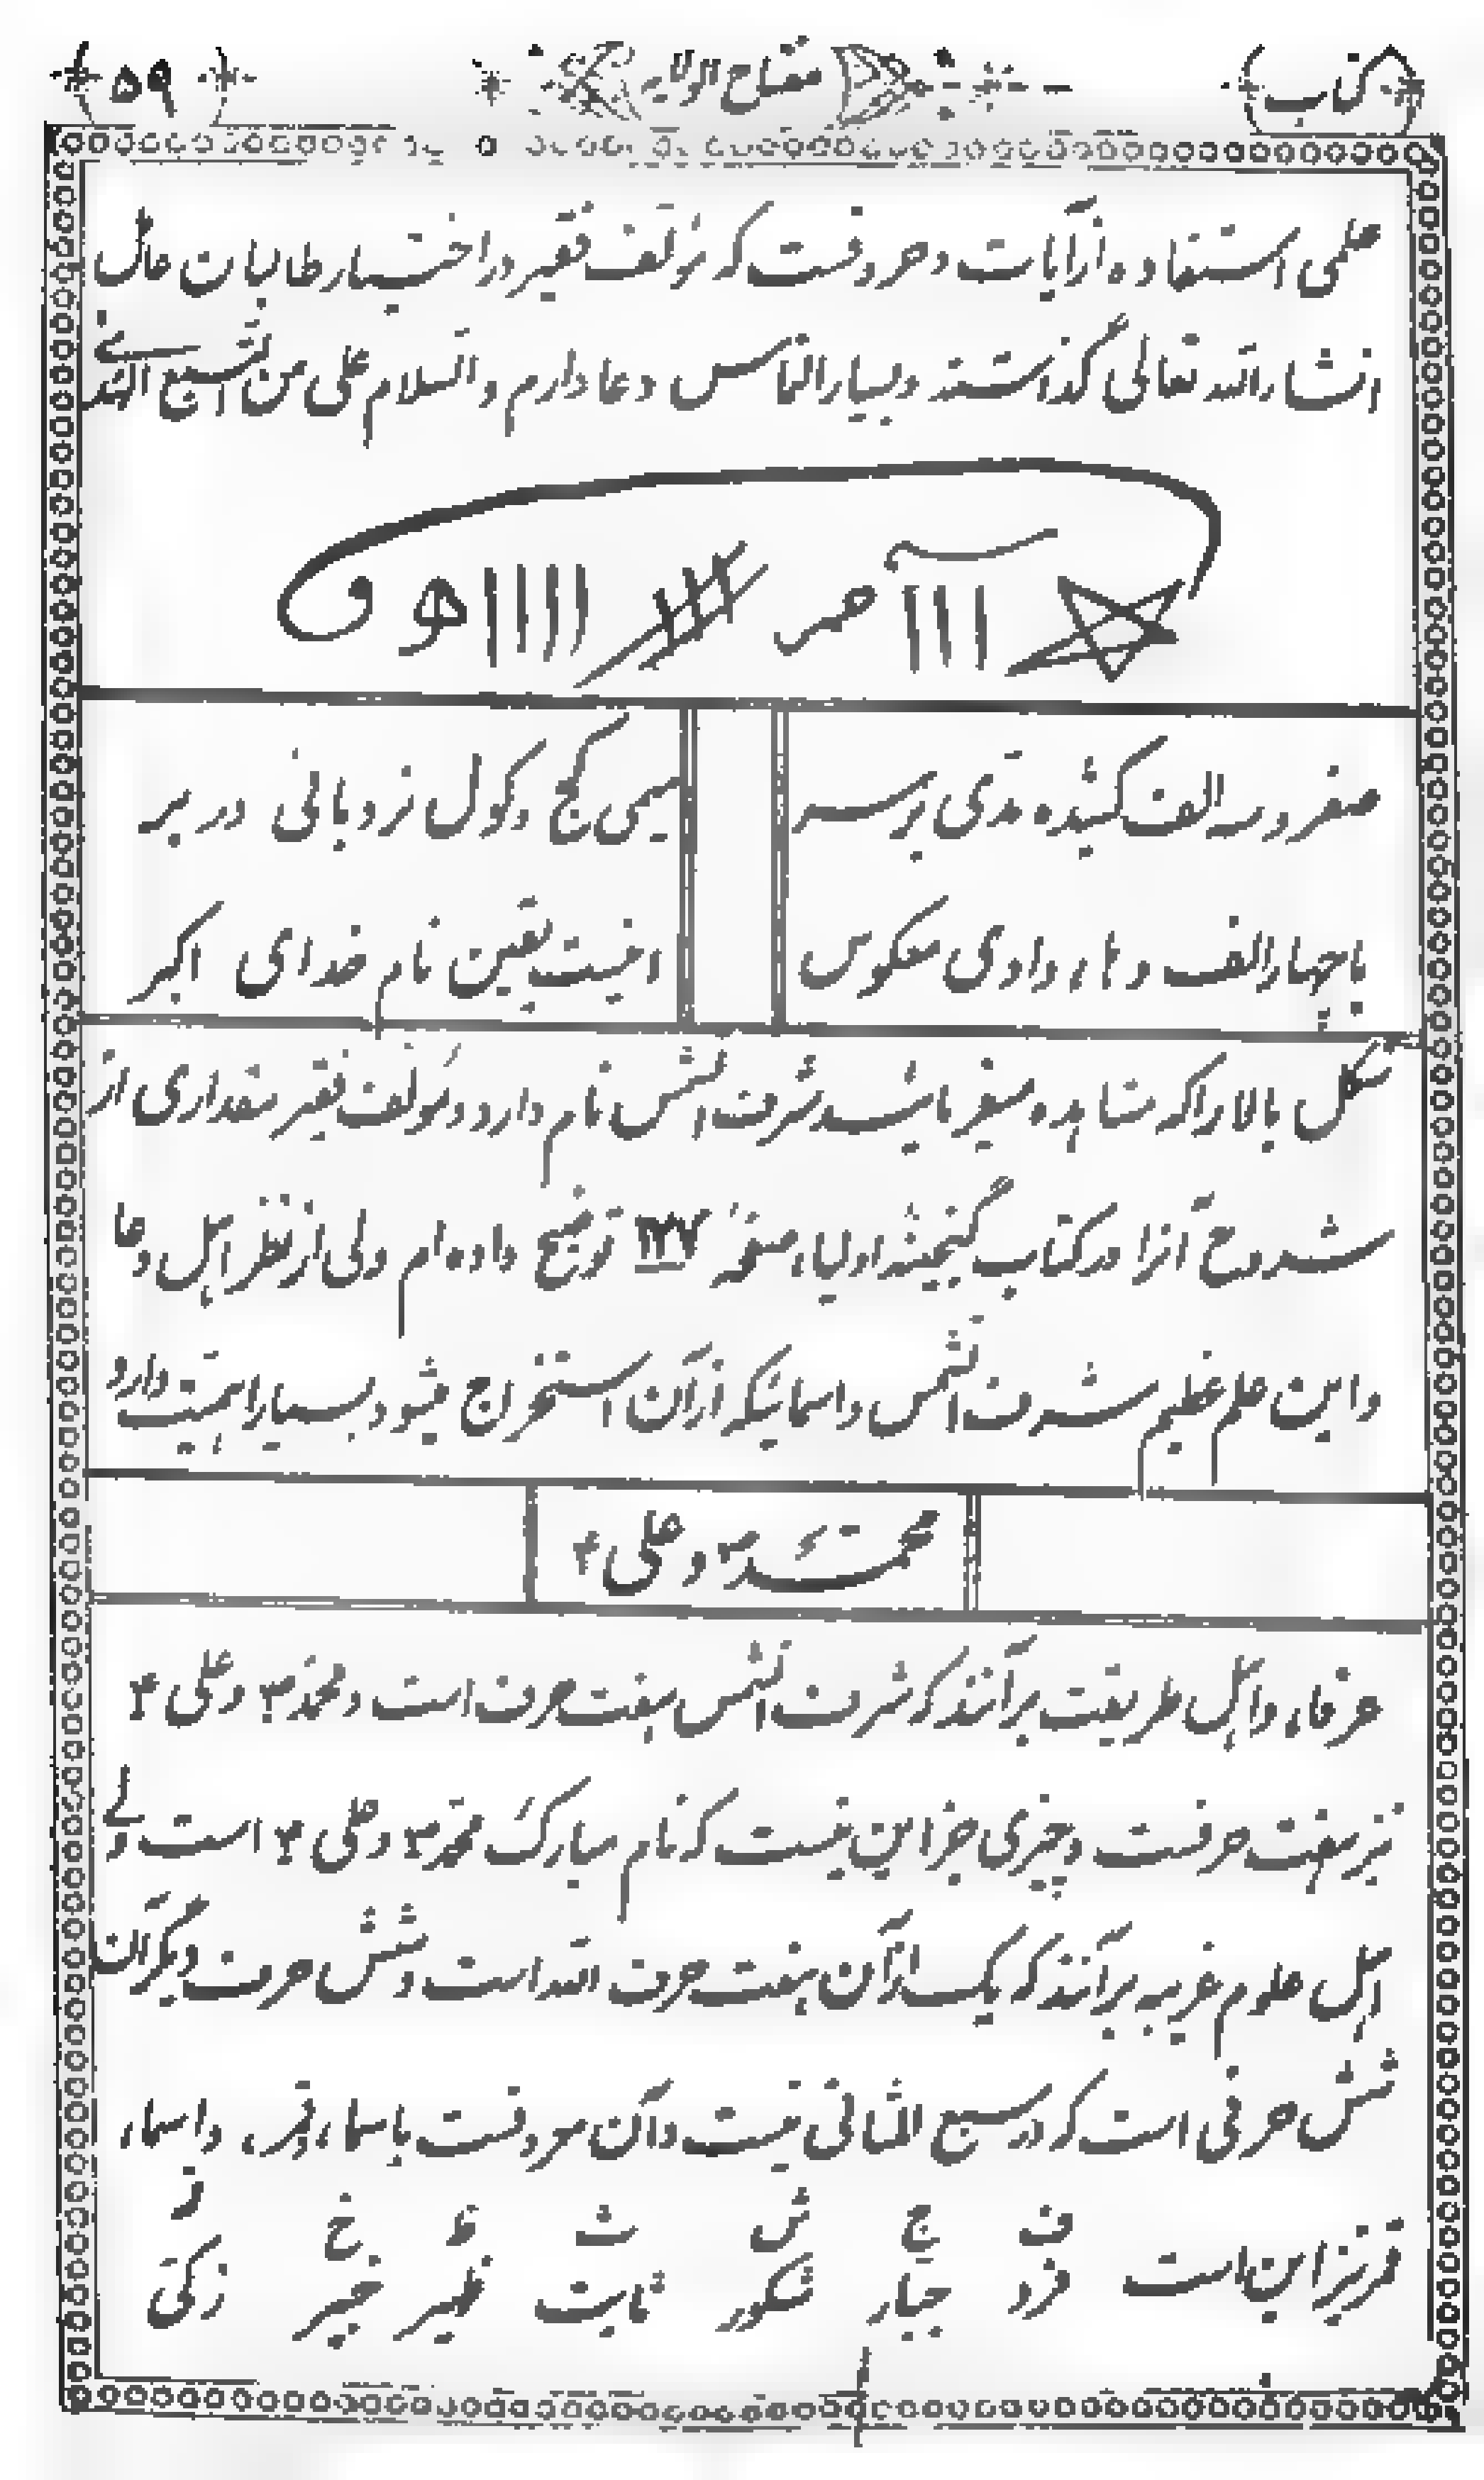 کتاب
مفتاح الولایه
۵۹
علمی استفاده از آیات و حروفست که مؤلف فقیر در اختیار طالبان عال
انشاءالله تعالی گذاشته و بسیار التماس دعا دارم والسلام علی من اتبع الهدی
صفر و سه الف کشیده مدی بر سر
میمی کج و کول نردبانی در بر
با چهار الف و هاء واوی معکوس
اینست یقین نام خدای اکبر
شکل بالا را که مشاهده میفرمائید شرف الشمس نام دارد و مؤلف فقیر مقداری از
شروح آنرا در کتاب گنجینه اولیاء صفحه ۱۲۷ توضیح داده‌ام ولی از نظر اهل دعا
و این علم عظیم شرف الشمس و اسمائیکه از آن استخراج میشود بسیار اهمیت دارد
محمد ص و علی ع
عرفاء و اهل طریقت برآنند که شرف الشمس هفت حرف است و محمد ص و علی ع
نیز هفت حرفست و چیزی جز این نیست که نام مبارک محمد ص و علی ع است ولی
اهل علوم غریبه برآنند که یک از آن هفت حرف الله است و شش حرف دیگر آن
شش حرفی است که در سبع المثانی نیست و آن حروفست با اسماء قمر، و اسماء
قمر نیز این است
ف ج ش ث ظ خ ز
فرد جبار شکور ثابت ظهیر خبیر زکی